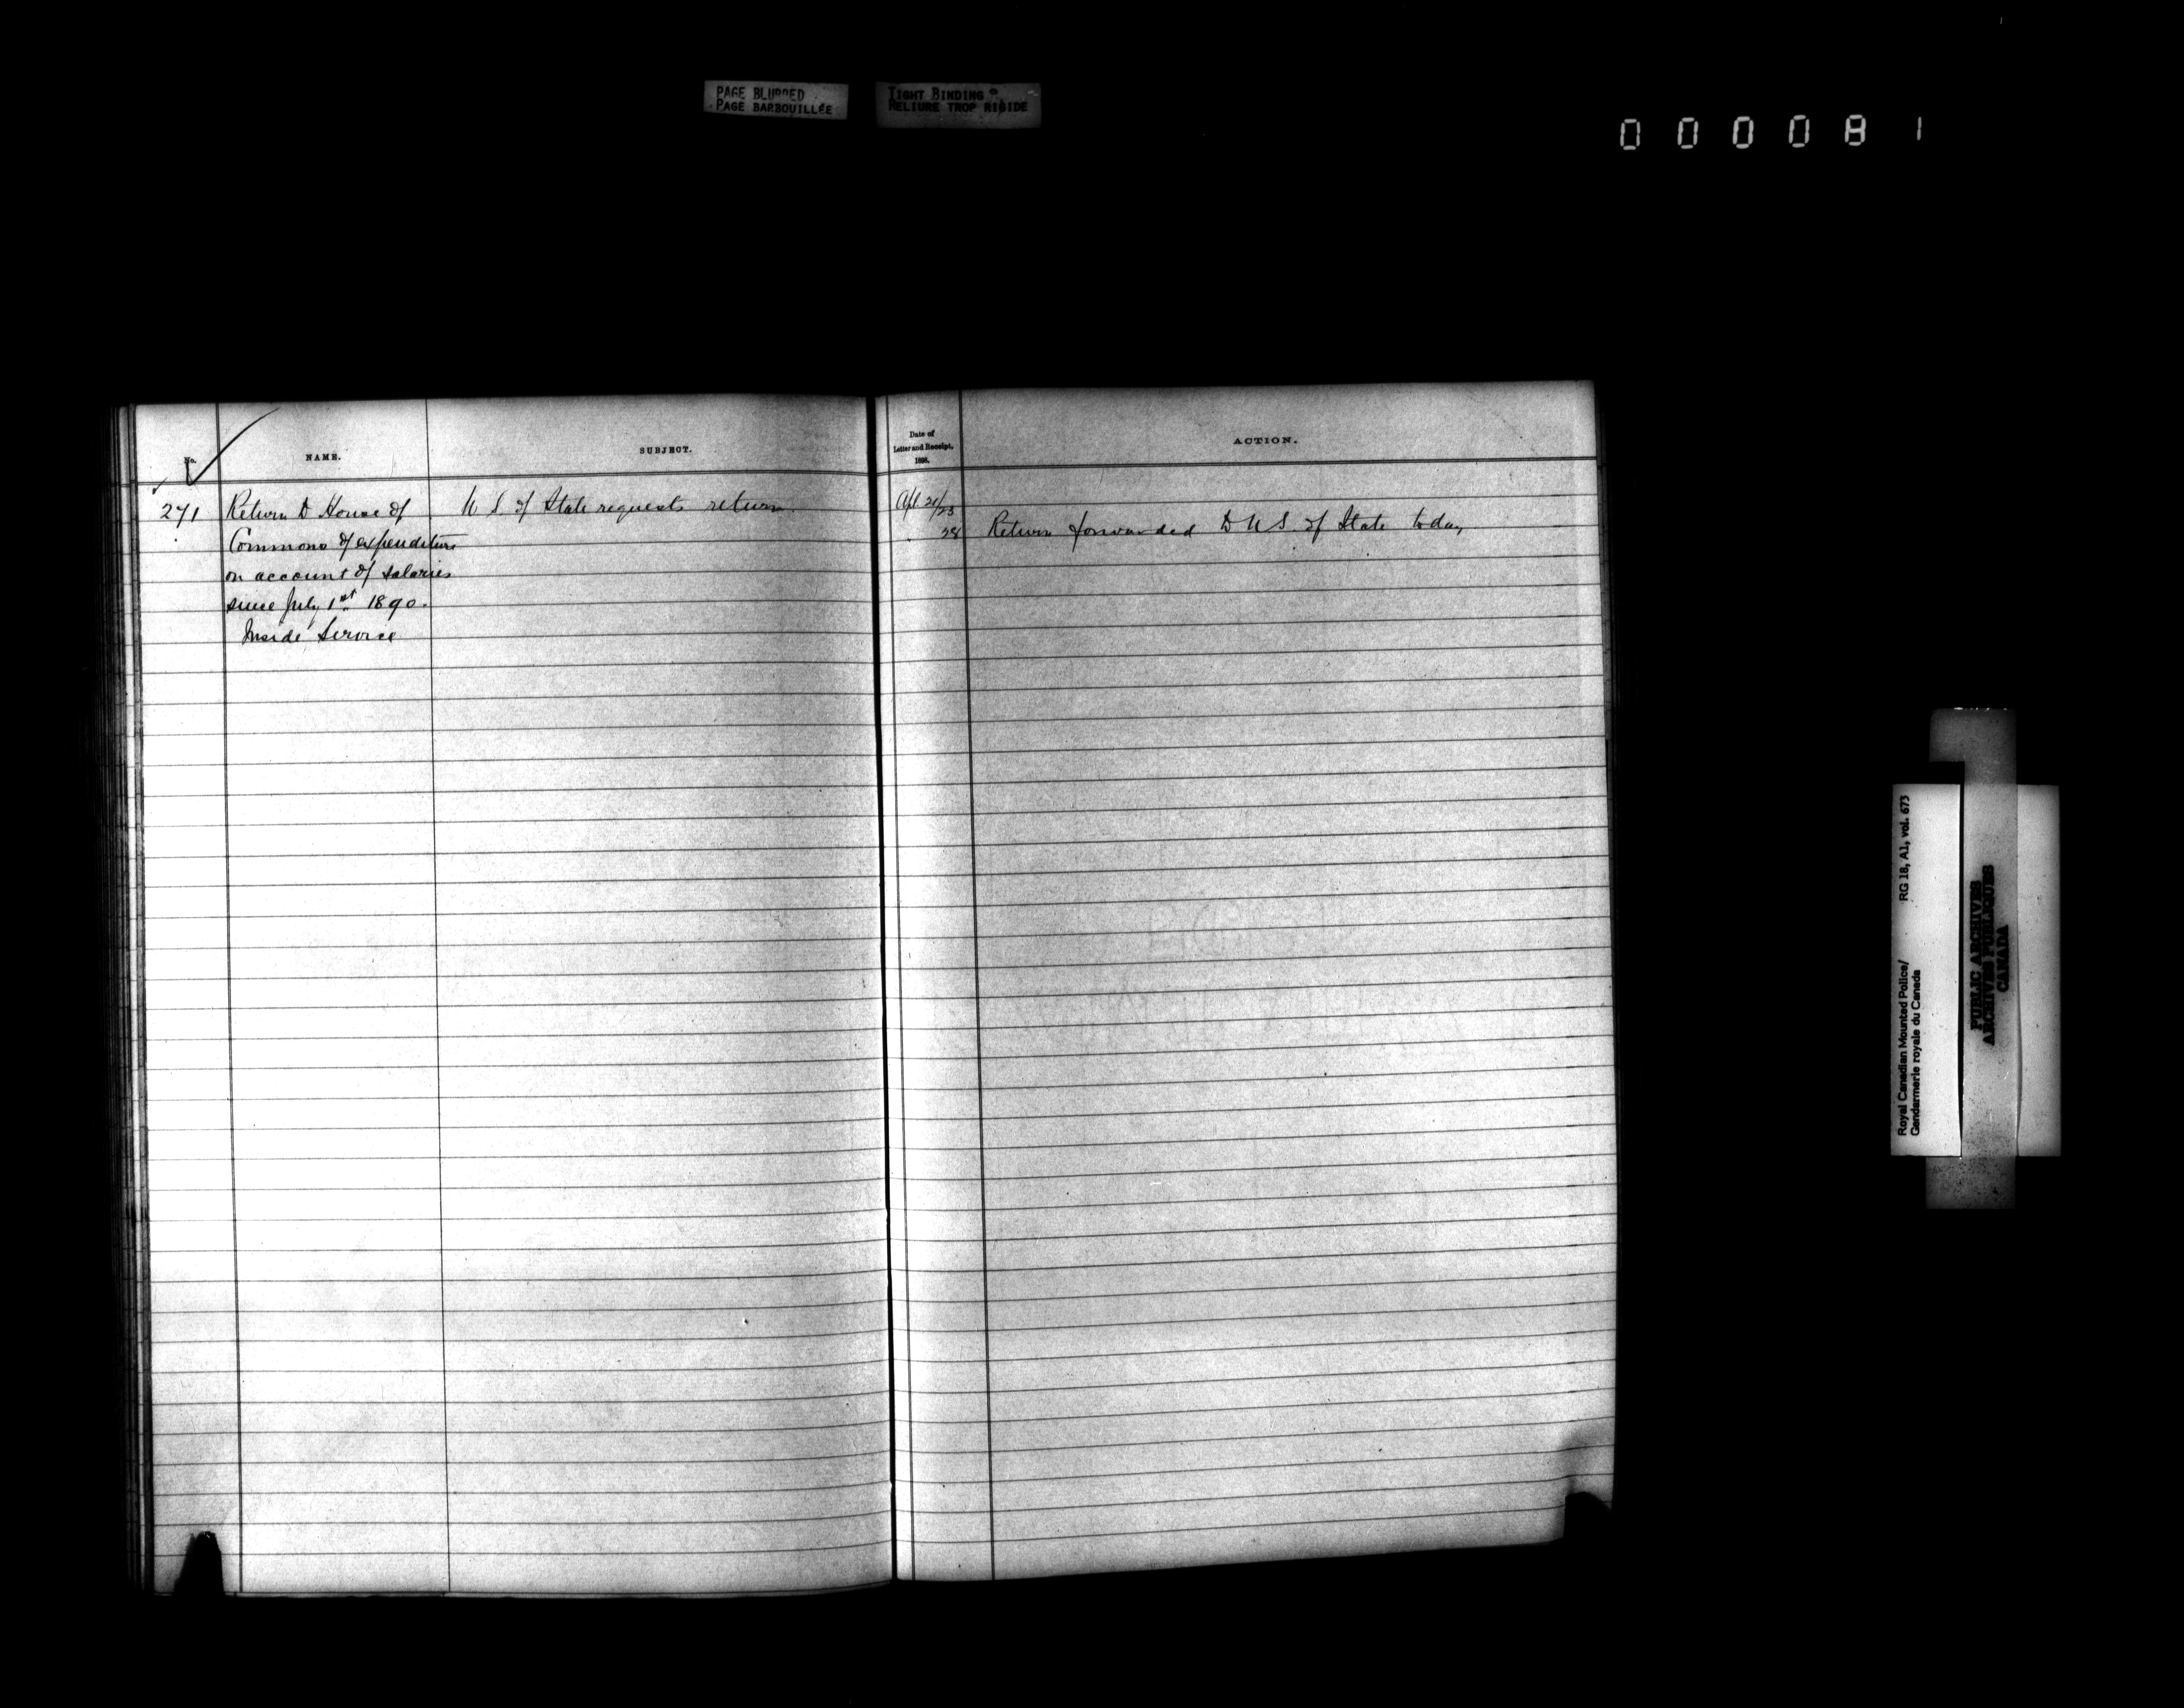 PAGE BLURRED
PAGE BARBOUILLÉE
TIGHT BINDING
RELIURE TROP RIGIDE
0 0 0 0 8 1
No.
NAME.
SUBJECT.
Date of
Letter and Receipt.
1898.
ACTION.
271
Return to House of
Commons of expenditure
on account of salaries
since July 1st 1890.
Inside Service
U S. of State requests return.
Apl. 21/23
28
Return forwarded to U S. of State today
Royal Canadian Mounted Police/ RG 18, A1, vol. 673
Gendarmerie royale du Canada
PUBLIC ARCHIVES
ARCHIVES PUBLIQUES
CANADA